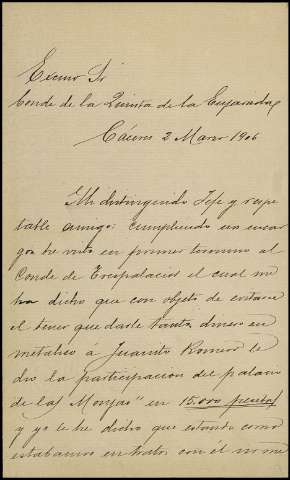 Excmo Sr
Conde de la Quinta de la Enjarada
Cáceres 2 Marzo 1906
Mi distinguido Jefe y respe
table amigo: Cumpliendo su encar
go he visto en primer termino al
Conde de Trespalacios el cual me
ha dicho que con objeto de evitarse
el tener que darle tanto dinero en
metalico á Juanito Romero le
dio la participacion del palacio
de las Monjas" en 15.000 pesetas
y yo le he dicho que estando como
estabamos en tratos con él no me